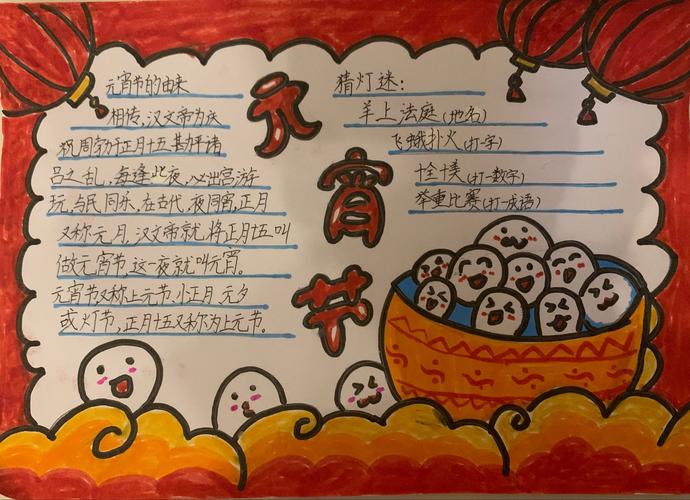 元宵节的由来
相传,汉文帝为庆
祝周勃于正月十五勘平诸
吕之乱,每逢此夜,必出宫游
玩,与民同乐,在古代,夜同宵,正月
又称元月,汉文帝就将正月十五叫
做元宵节,这一夜就叫元宵。
元宵节又称上元节,小正月,元夕
或灯节,正月十五又称为上元节。
元宵节
猜灯迷:
羊上法庭(地名)
飞蛾扑火(打一字)
十全十美(打一数字)
举重比赛(打一成语)